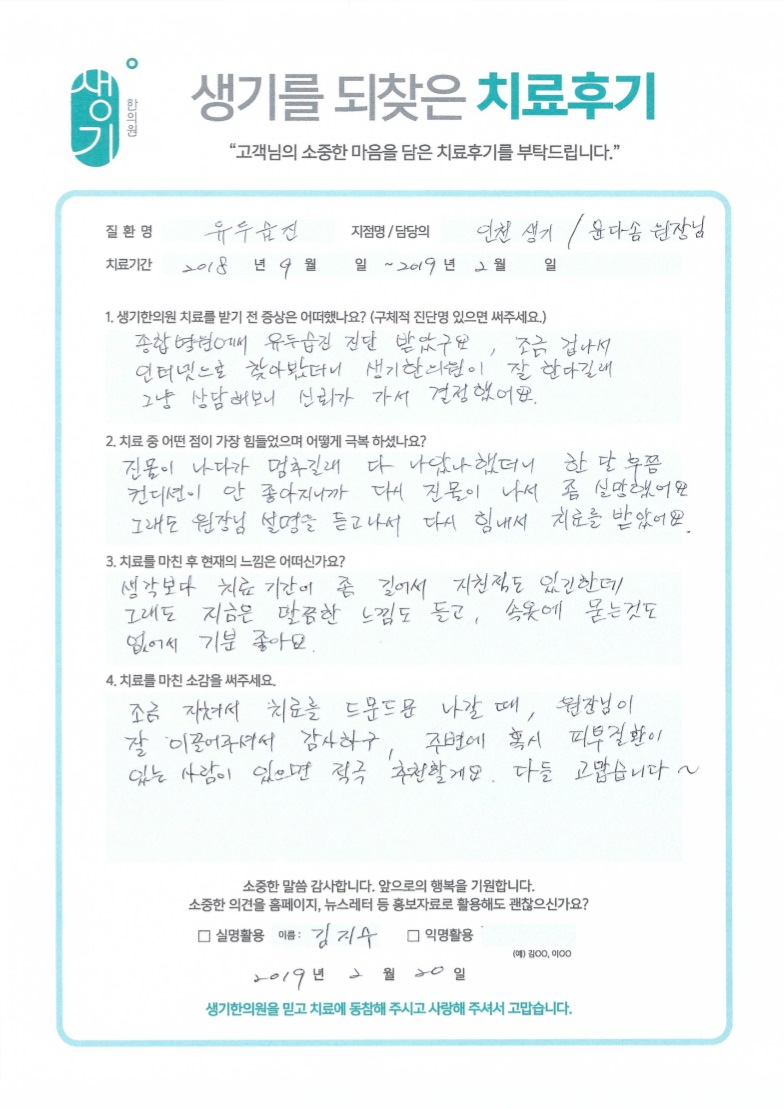 생기
한의원
생기를 되찾은 치료후기
“고객님의 소중한 마음을 담은 치료후기를 부탁드립니다.”
질 환 명 유두습진 지점명 / 담당의 인천 생기 / 윤다솜 원장님
치료기간 2018 년 9 월 일 ~ 2019 년 2 월 일
1. 생기한의원 치료를 받기 전 증상은 어떠했나요? (구체적 진단명 있으면 써주세요.)
종합병원에서 유두습진 진단 받았구요, 조금 겁나서
인터넷으로 찾아봤더니 생기한의원이 잘 한다길래
그냥 상담해보니 신뢰가 가서 결정했어요.
2. 치료 중 어떤 점이 가장 힘들었으며 어떻게 극복 하셨나요?
진물이 나다가 멈추길래 다 나았나했더니 한 달 후쯤
컨디션이 안 좋아지니까 다시 진물이 나서 좀 실망했어요
그래도 원장님 설명을 듣고나서 다시 힘내서 치료를 받았어요.
3. 치료를 마친 후 현재의 느낌은 어떠신가요?
생각보다 치료 기간이 좀 길어서 지친적도 있긴한데
그래도 지금은 말끔한 느낌도 들고, 속옷에 묻는것도
없어서 기분 좋아요.
4. 치료를 마친 소감을 써주세요.
조금 지쳐서 치료를 드문드문 나갈 때, 원장님이
잘 이끌어주셔서 감사하구, 주변에 혹시 피부질환이
있는 사람이 있으면 적극 추천할게요. 다들 고맙습니다~
소중한 말씀 감사합니다. 앞으로의 행복을 기원합니다.
소중한 의견을 홈페이지, 뉴스레터 등 홍보자료로 활용해도 괜찮으신가요?
□ 실명활용 이름 : 김지수 □ 익명활용
(예) 김OO, 이OO
2019 년 2 월 20 일
생기한의원을 믿고 치료에 동참해 주시고 사랑해 주셔서 고맙습니다.